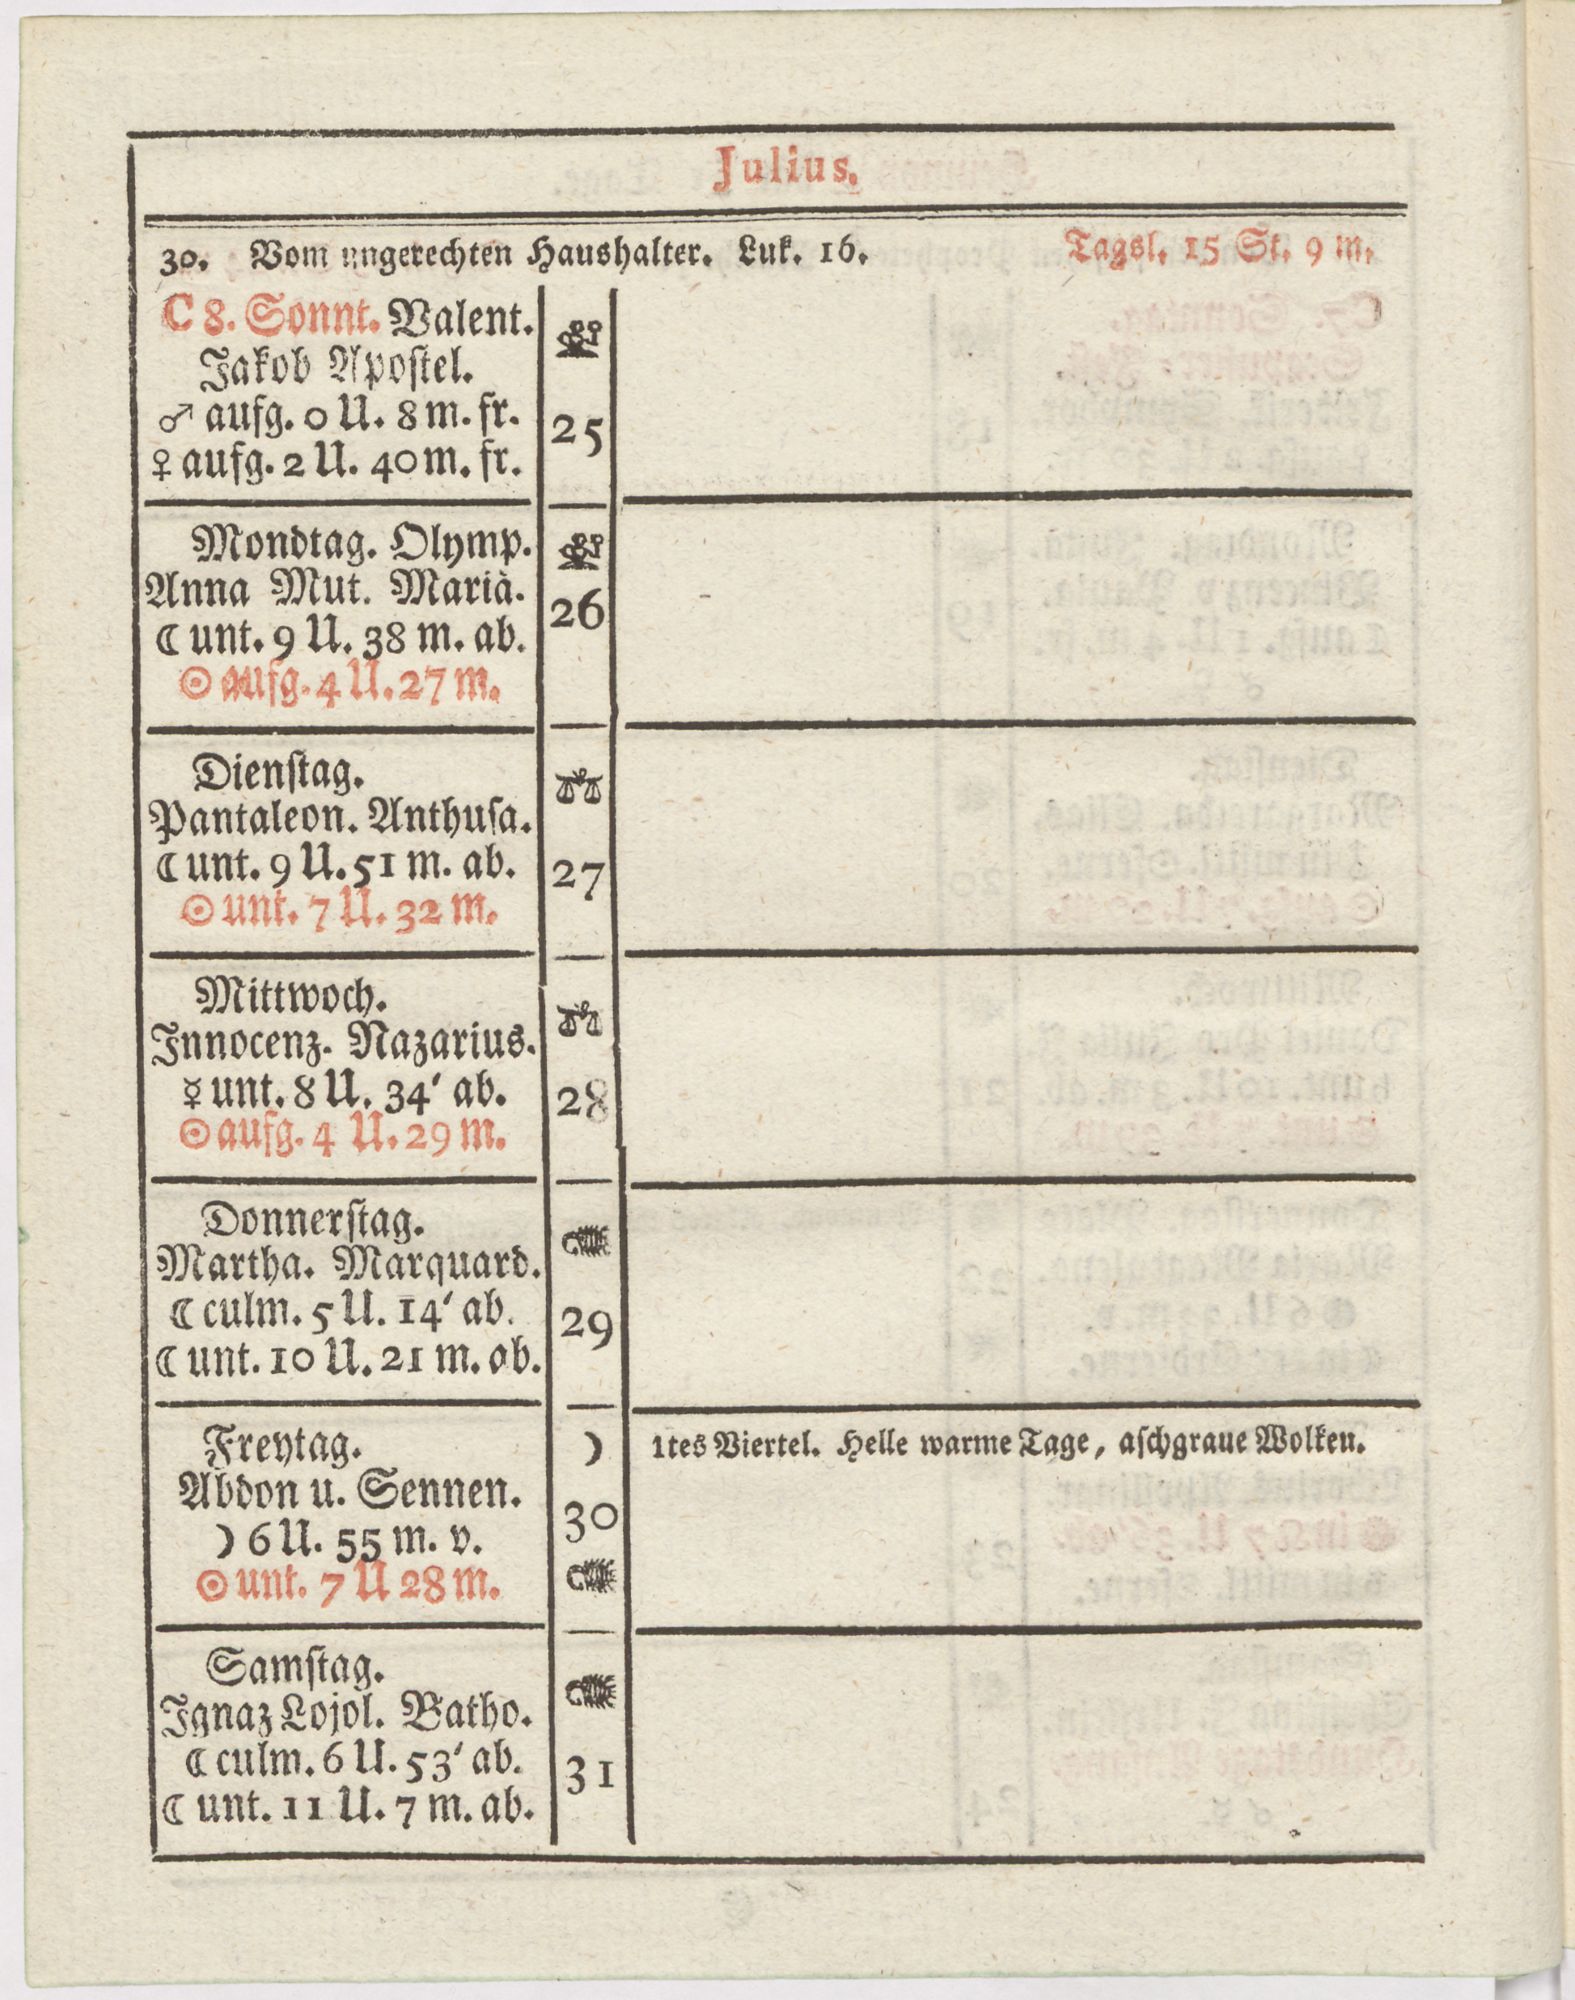 Julius.
30. Vom ungerechten Haushalter. Luk. 16. Tagsl. 15 St. 9 m.
C 8. Sonnt. Valent.
Jakob Apostel.
♂ aufg. 0 U. 8 m. fr.
♀ aufg. 2 U. 40 m. fr.
25
Mondtag. Olymp.
Anna Mut. Mariä.
☾ unt. 9 U. 38 m. ab.
☉ aufg. 4 U. 27 m.
26
Dienstag.
Pantaleon. Anthusa.
☾ unt. 9 U. 51 m. ab.
☉ unt. 7 U. 32 m.
27
Mittwoch.
Innocenz. Nazarius.
☿ unt. 8 U. 34′ ab.
☉ aufg. 4 U. 29 m.
28
Donnerstag.
Martha. Marquard.
☾ culm. 5 U. 14′ ab.
☾ unt. 10 U. 21 m. ab.
29
Freytag.
Abdon u. Sennen.
☽ 6 U. 55 m. v.
☉ unt. 7 U 28 m.
☽
30
1tes Viertel. Helle warme Tage, aschgraue Wolken.
Samstag.
Ignaz Lojol. Batho.
☾ culm. 6 U. 53′ ab.
☾ unt. 11 U. 7 m. ab.
31